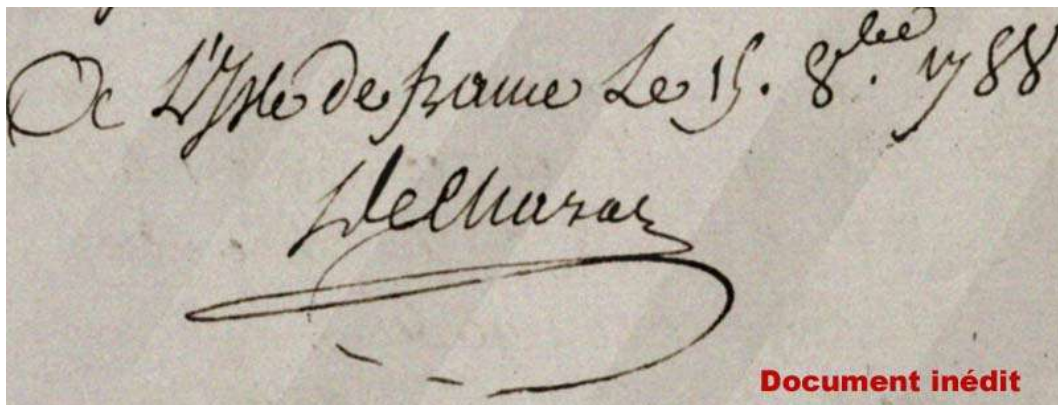 De L'Isle de france Le 15. 8.bre 1788
DeChazal
Document inédit